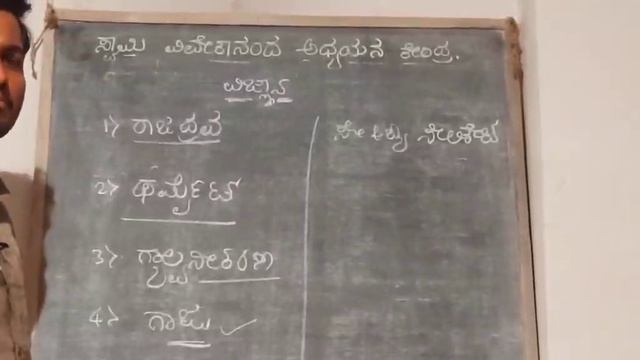 ಸ್ವಾಮಿ ವಿವೇಕಾನಂದ ಅಧ್ಯಯನ ಕೇಂದ್ರ.
ವಿಜ್ಞಾನ
1> ರಾಜದ್ರವ
2> ಥರ್ಮೈಟ್
3> ಗ್ಯಾಲ್ವನೀಕರಣ
4> ಗಾಜು